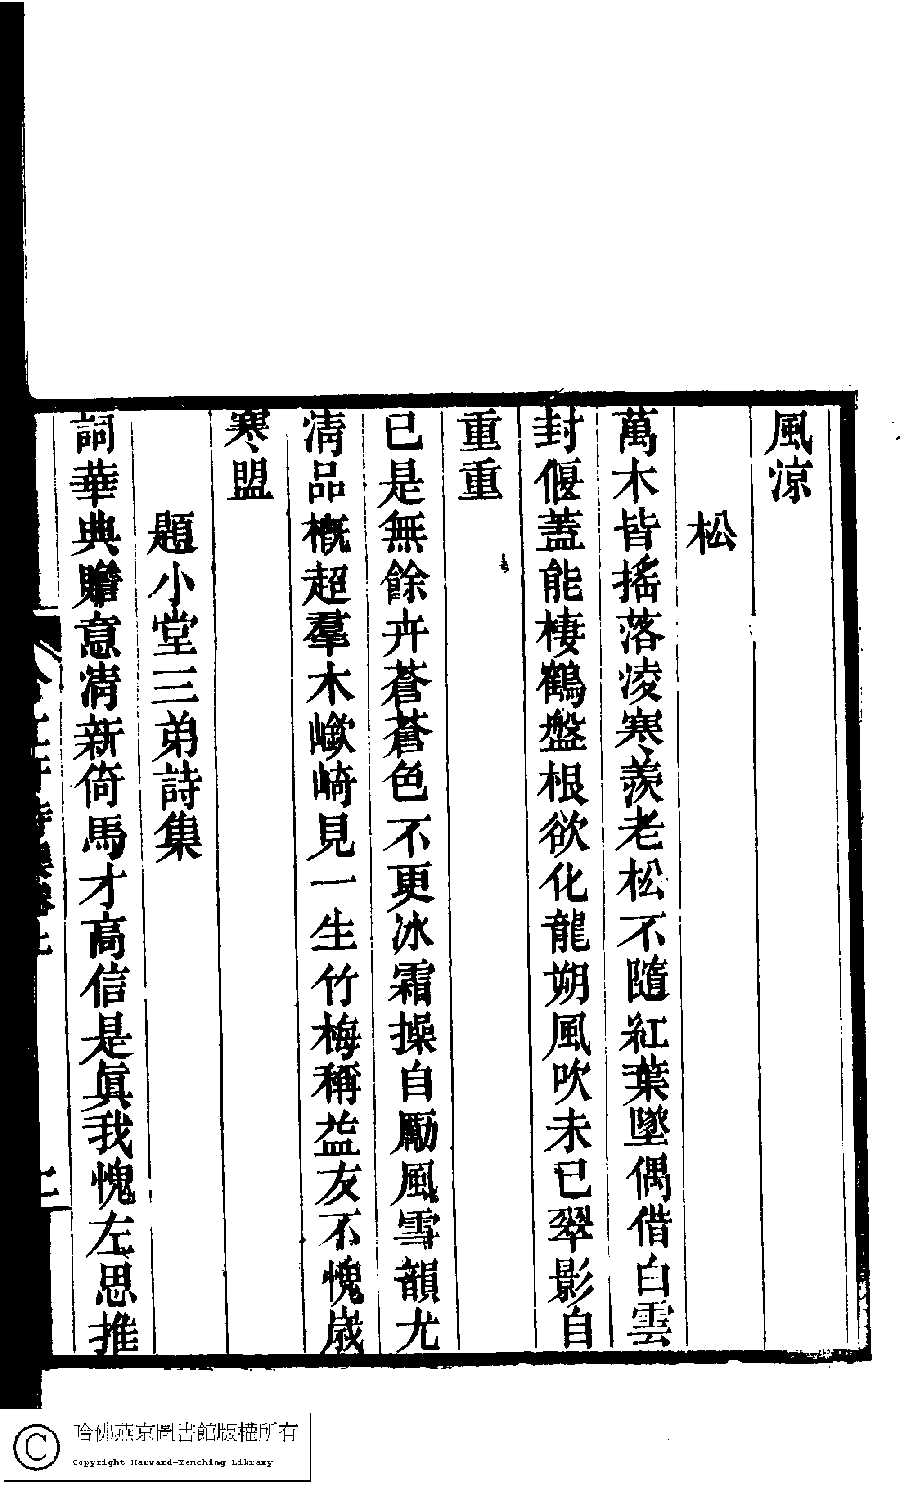 風涼
松
萬木皆搖落凌寒羨老松不隨紅葉墜偶借白雲
封偃蓋能棲鶴盤根欲化龍朔風吹未已翠影自
重重
已是無餘卉蒼蒼色不更冰霜操自勵風雪韻尤
清品概超羣木嶔崎見一生竹梅稱益友不愧歲
寒盟
題小堂三弟詩集
詞華典贍意清新倚馬才高信是眞我愧左思推
哈佛燕京圖書館版權所有
Copyright Harvard-Yenching Library